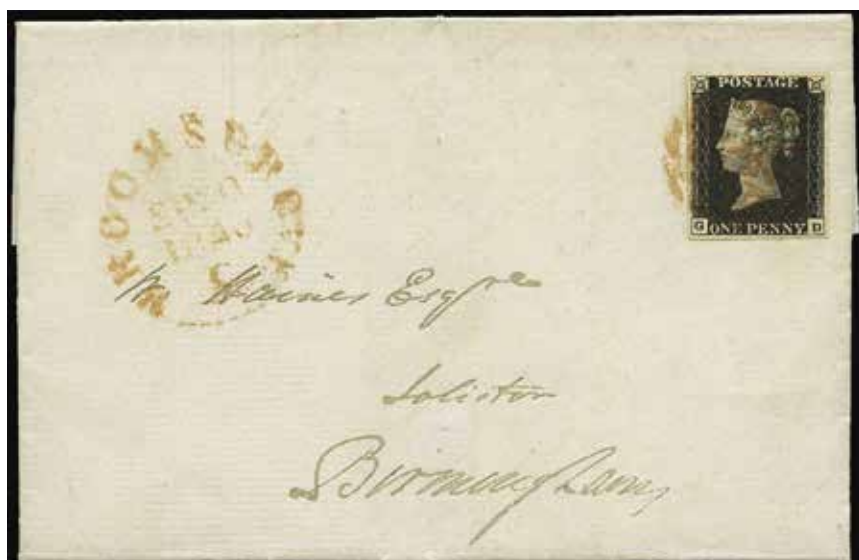 POSTAGE
G ONE PENNY D
BROMSGROVE
1840
Wm Haines Esqre
Soliciter
Birmingham